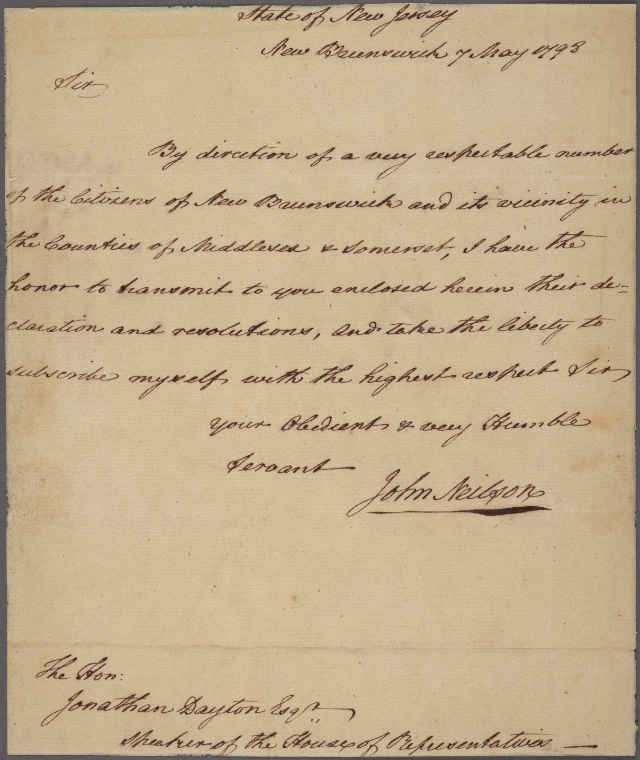 State of New Jersey
New Brunswick 7 May 1798
Sir
By direction of a very respectable number
of the Citizens of New Brunswick and its vicinity in
the Counties of Middlesex & Somerset, I have the
honor to transmit to you enclosed herein their de=
claration and resolutions, and take the liberty to
subscribe myself with the highest respect Sir
your Obedient & very Humble
Servant
John Neilson
The Hon:
Jonathan Dayton Esqr
Speaker of the House of Representatives